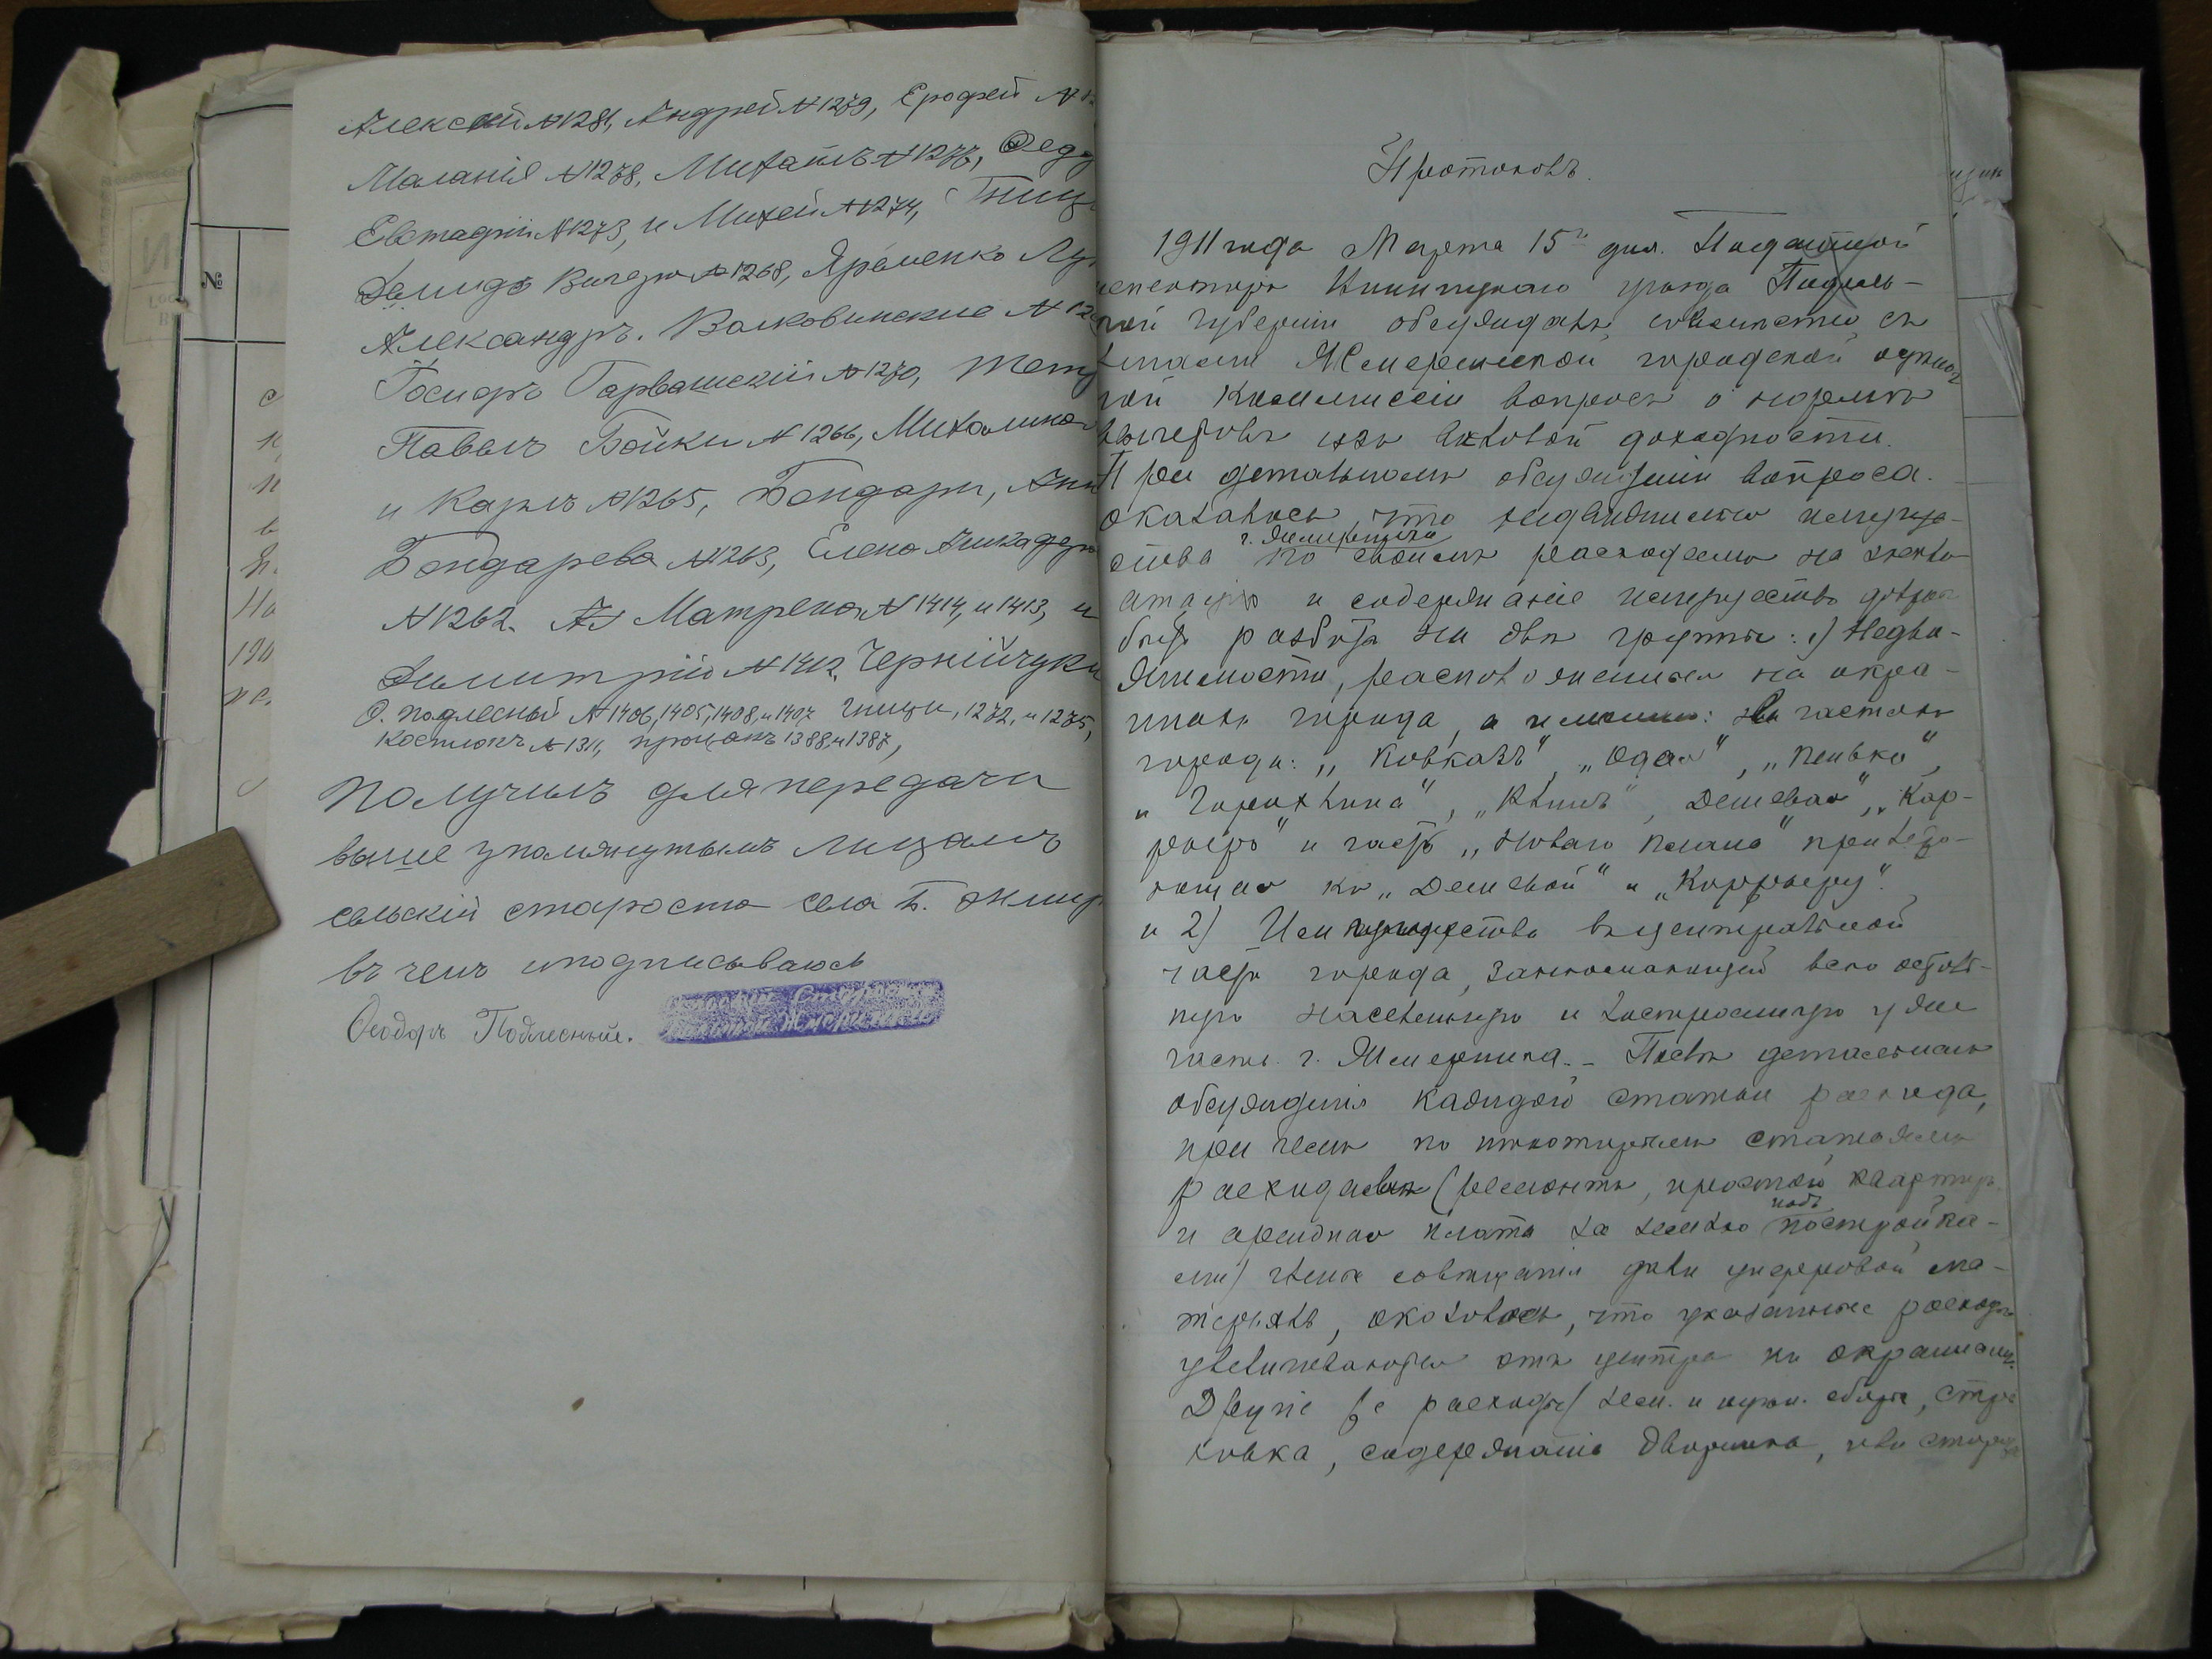 Алексѣй №1281, Андрей №1279, Ерофей №
Маланія №1278, Михаилъ №1276,
Евстафій №1273, и Михей №1274,
Демидъ Вичерю №1268, Яременко
Александръ. Волковинские №
Іосифъ Гарвашскій №1270,
Павелъ Бойки №1266,
и Карлъ №1265, Бондарь,
Бондарева №1263, Елена
№1262. Матрена №1414, и 1413, и
Димитрій №1412, Чернійчуки
Ѳ. Подлесный №1406, 1405, 1408, и 1407 Гнищи, 1272, и 1275,
Костюкъ №1311, Процокъ 1388, и 1387,
Получилъ для передачи
выше упомянутымъ лицамъ
сельскій староста села Б. Жмер
въ чемъ и подписываюсь
Ѳеодоръ Подлесный.
Протоколъ.
1911 года Марта 15 дня. Податной
инспекторъ Винницкаго уѣзда Подоль-
ской губерніи обсуждалъ совмѣстно съ
членами Жмеринской городской оцѣноч
ной Коммиссіи вопросъ о нормахъ
вычетовъ изъ валовой доходности.
При детальномъ обсужденіи вопроса
оказалось, что недвижимыя имуще-
г. Жмеринки
ства по своимъ расходамъ на эксплу
атацію и содержаніе имуществъ должны
быть разбиты на двѣ группы: 1) Недви-
жимости, расположенныя на окра-
инахъ города, а именно: въ частяхъ
города: „Кавказъ", „Одая", „Пеньки",
„Горихлина", „Клинъ", „Дешевая", „Кар-
рьеръ" и часть „Новаго плана" прилега-
ющая къ „Дешевой" и „Каррьеру".
и 2) Имущества въ центральной
части города, заключающей всю осталь-
ную населенную и застроенную уже
часть г. Жмеринка. - Послѣ детальнаго
обсужденія каждой статьи расхода,
при чемъ по нѣкоторымъ статьямъ
расходовъ (ремонтъ, простой квартиръ
подъ
и арендная плата за землю постройка-
ми) члены совѣщанія дали цифровой ма-
теріалъ, оказалось, что указанные расходы
увеличиваются отъ центра къ окраинамъ.
Другіе же расходы (зем. и гор. сборы, стра
ховка, содержаніе дворника, или сторожа